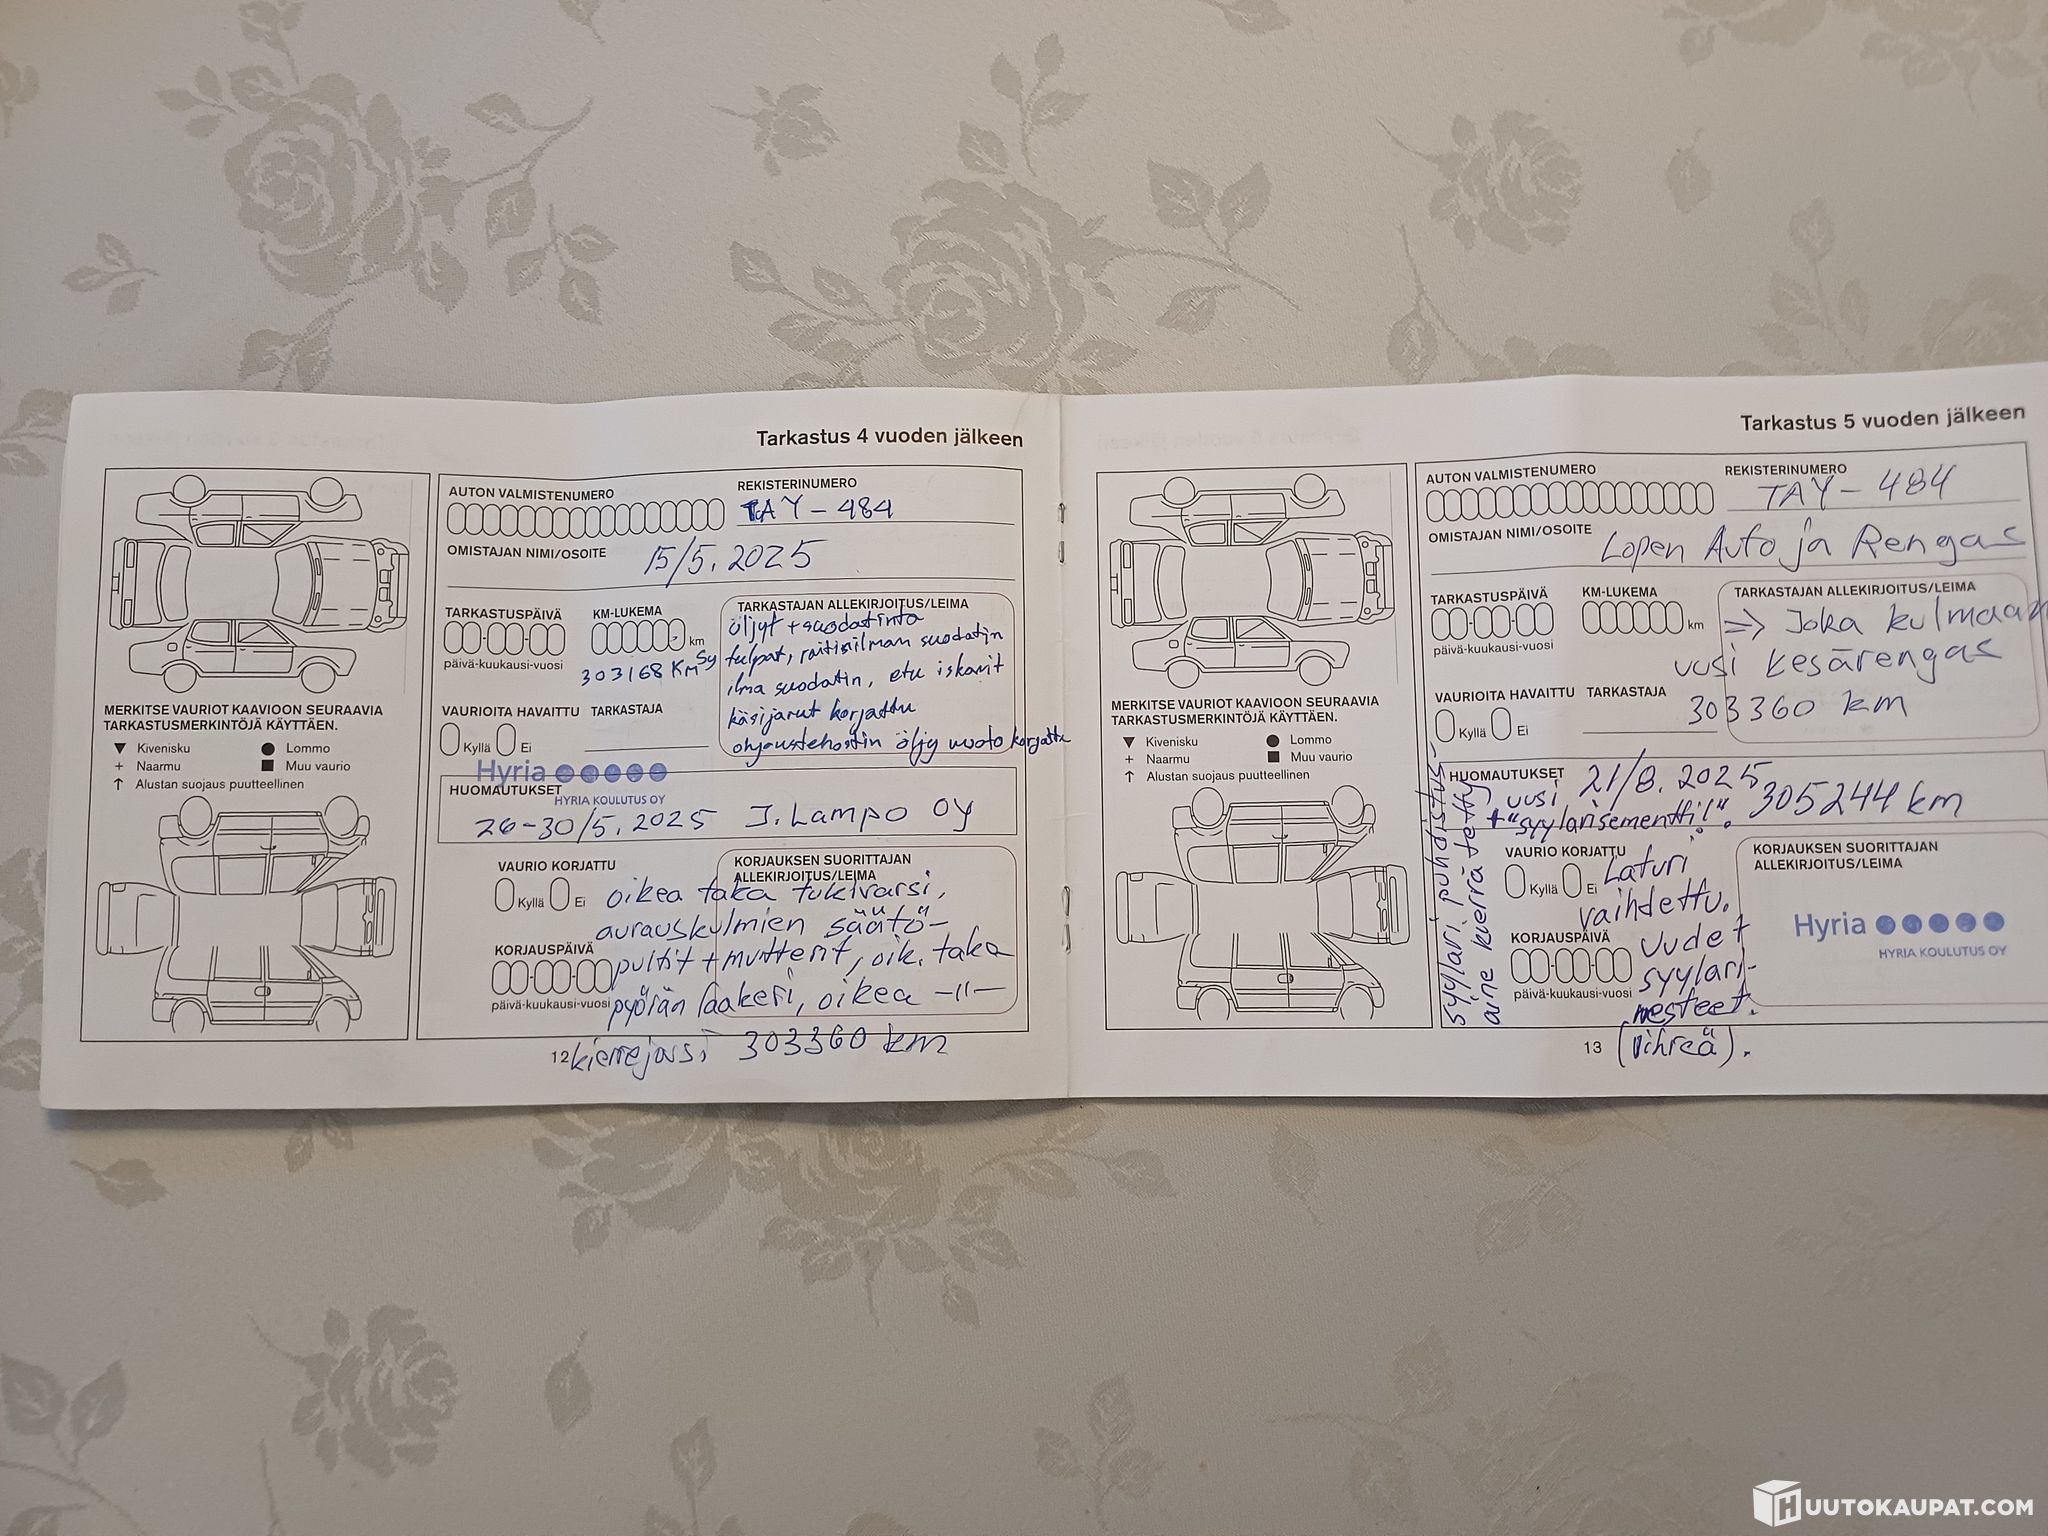 Tarkastus 4 vuoden jälkeen
AUTON VALMISTENUMERO
REKISTERINUMERO
TAY-484
OMISTAJAN NIMI/OSOITE
15/5.2025
TARKASTUSPÄIVÄ
päivä-kuukausi-vuosi
KM-LUKEMA
km
303168 Km
TARKASTAJAN ALLEKIRJOITUS/LEIMA
öljyt + suodatinta
tulpat, raitisilman suodatin
ilma suodatin, etu iskarit
käsijarrut korjattu
ohjaustehostin öljy vuoto korjattu
VAURIOITA HAVAITTU
Kyllä Ei
TARKASTAJA
MERKITSE VAURIOT KAAVIOON SEURAAVIA
TARKASTUSMERKINTÖJÄ KÄYTTÄEN.
▼ Kivenisku
● Lommo
+ Naarmu
■ Muu vaurio
↑ Alustan suojaus puutteellinen
Hyria
HYRIA KOULUTUS OY
HUOMAUTUKSET
26-30/5.2025 J. Lampo oy
VAURIO KORJATTU
Kyllä Ei
KORJAUKSEN SUORITTAJAN
ALLEKIRJOITUS/LEIMA
KORJAUSPÄIVÄ
päivä-kuukausi-vuosi
oikea taka tukivarsi,
aurauskulmien säätö-
pultit + mutterit, oik. taka
pyörän laakeri, oikea -11-
kierrejousi 303360 km
12
Tarkastus 5 vuoden jälkeen
AUTON VALMISTENUMERO
REKISTERINUMERO
TAY-484
OMISTAJAN NIMI/OSOITE
Lopen Auto ja Rengas
TARKASTUSPÄIVÄ
päivä-kuukausi-vuosi
KM-LUKEMA
km
TARKASTAJAN ALLEKIRJOITUS/LEIMA
=> Joka kulmaan
uusi kesärengas
303360 km
VAURIOITA HAVAITTU
Kyllä Ei
TARKASTAJA
MERKITSE VAURIOT KAAVIOON SEURAAVIA
TARKASTUSMERKINTÖJÄ KÄYTTÄEN.
▼ Kivenisku
● Lommo
+ Naarmu
■ Muu vaurio
↑ Alustan suojaus puutteellinen
HUOMAUTUKSET
21/8.2025
305244 km
uusi
+ "syylarisementti".
syylari puhdistus-
aine kierrätetty
VAURIO KORJATTU
Kyllä Ei
Laturi
vaihdettu.
KORJAUSPÄIVÄ
päivä-kuukausi-vuosi
Uudet
syylari-
nesteet.
(vihreä).
KORJAUKSEN SUORITTAJAN
ALLEKIRJOITUS/LEIMA
Hyria
HYRIA KOULUTUS OY
13
HUUTOKAUPAT.COM